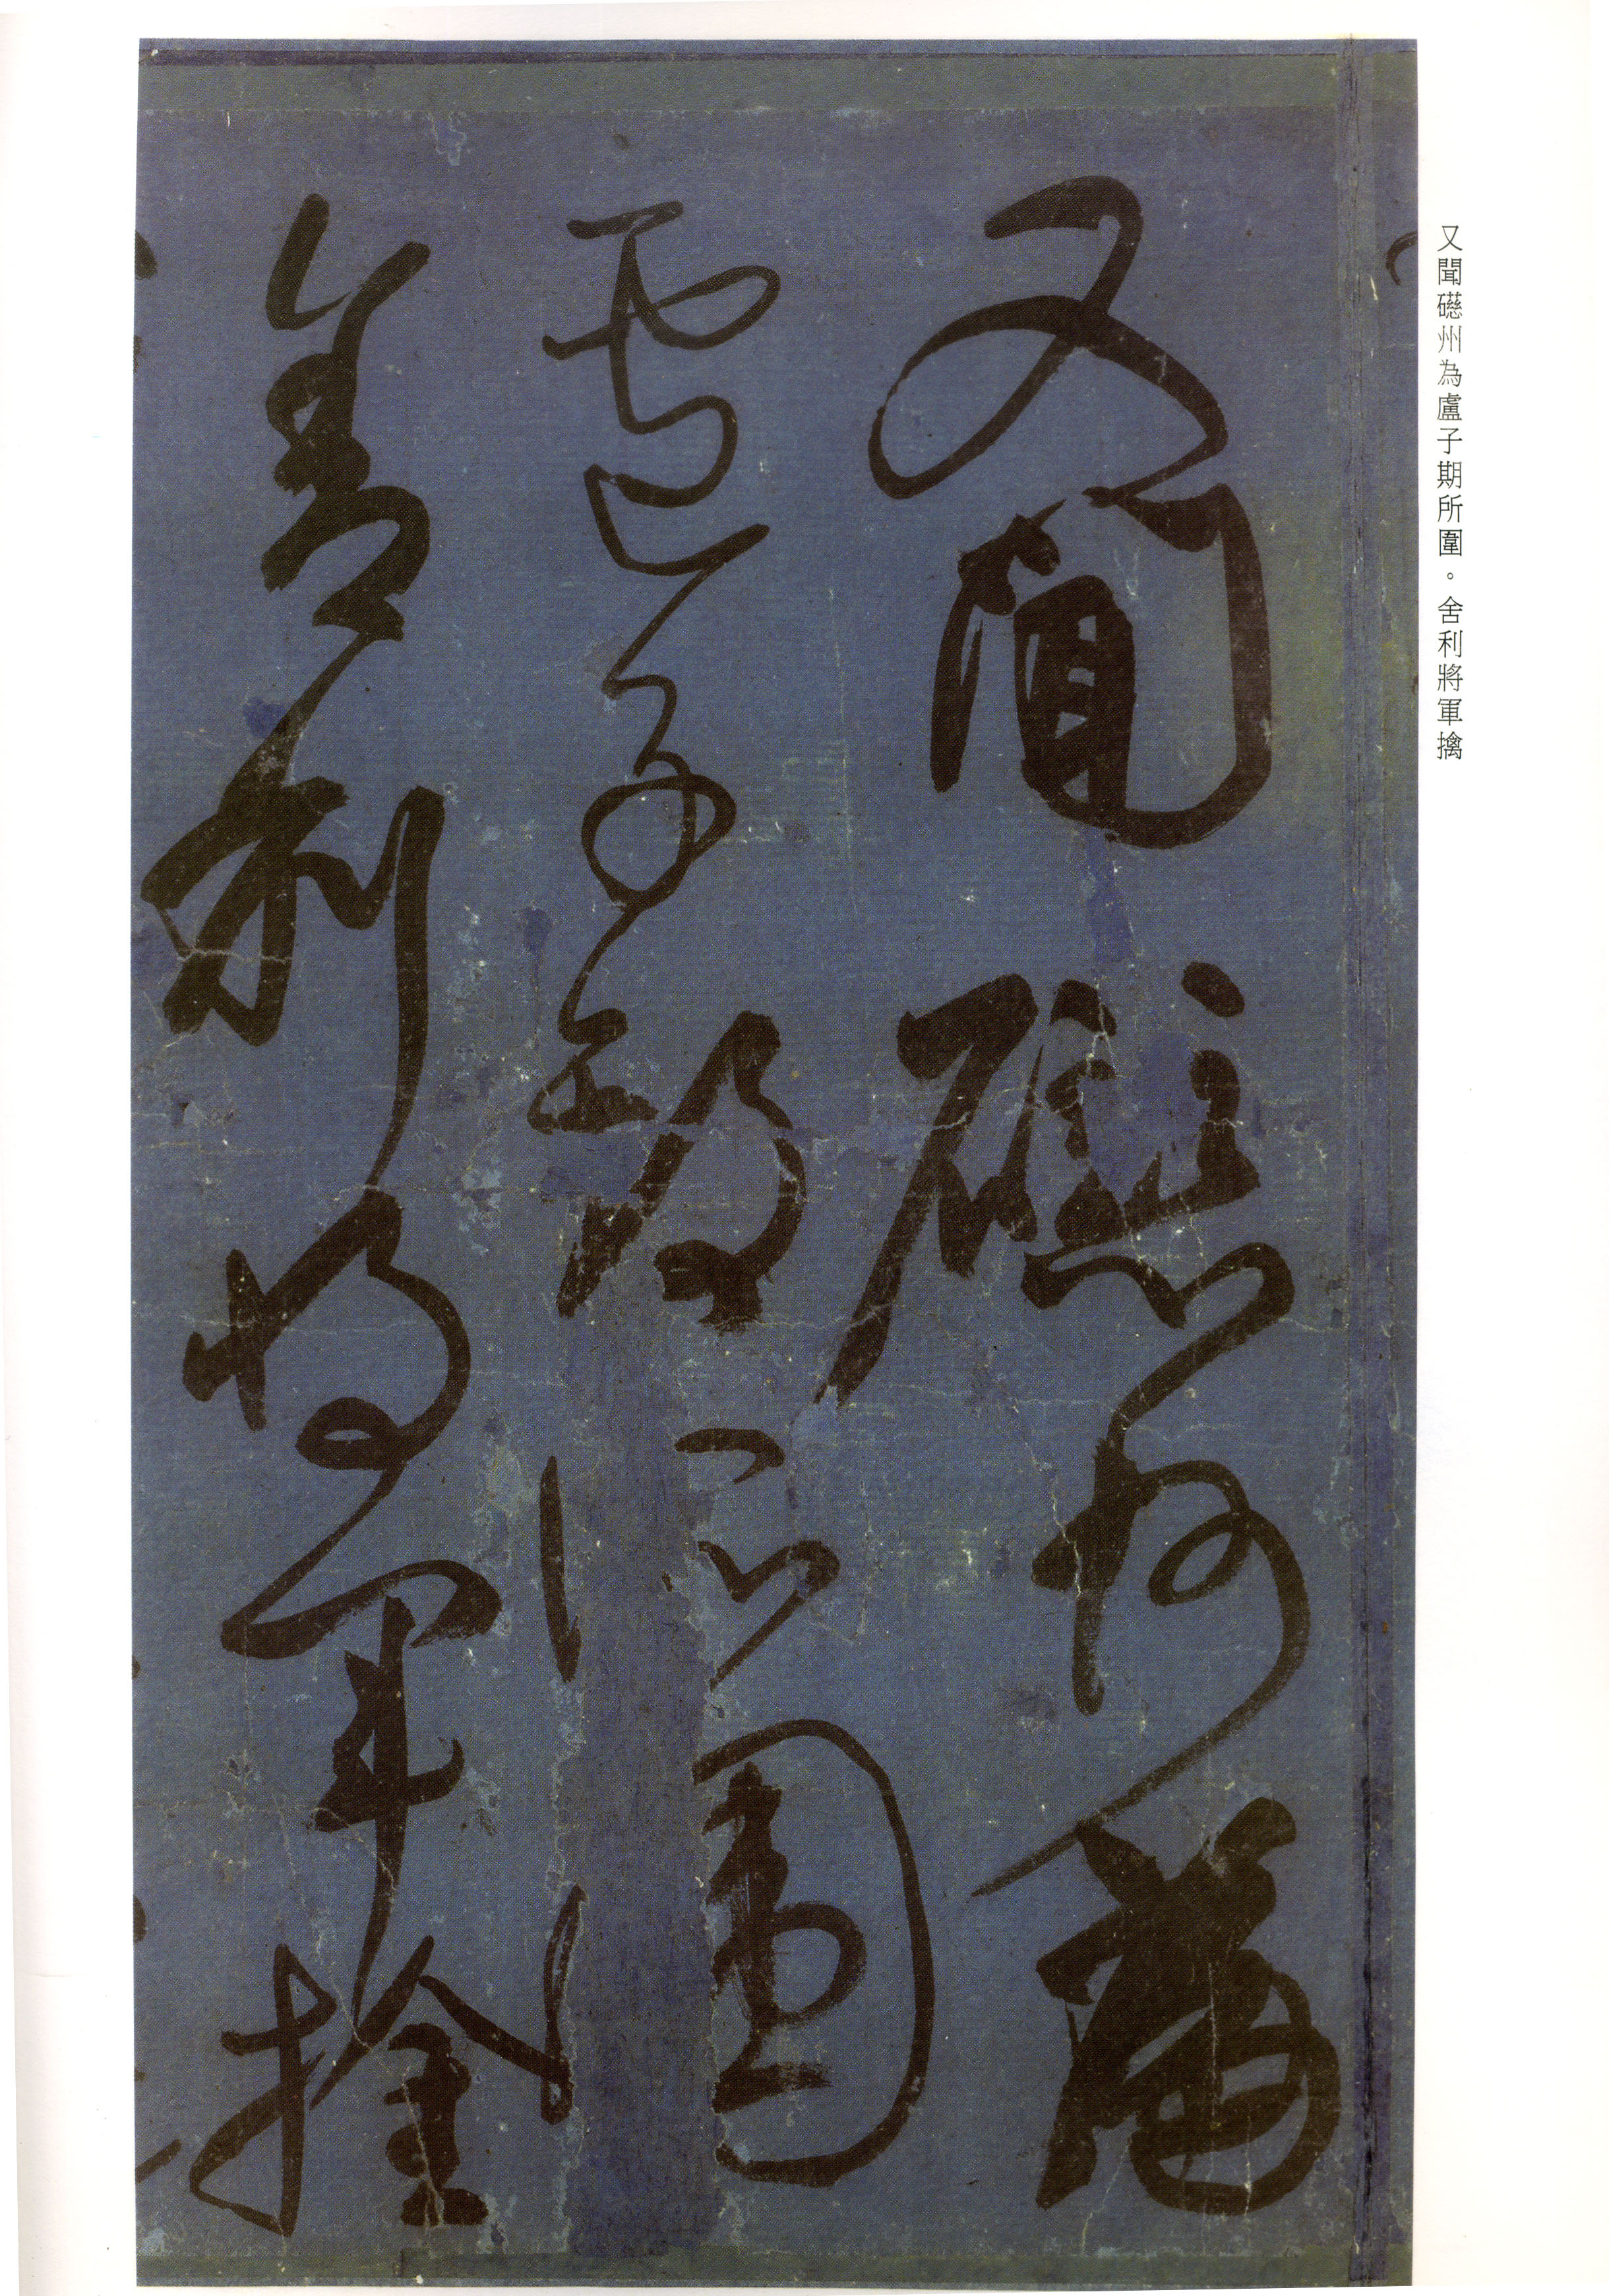 又聞礠州為盧子期所圍。舍利將軍擒
又聞礠州為
盧子期所圍
舍利將軍擒